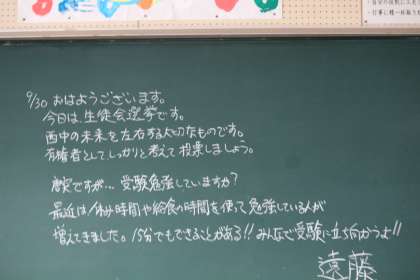 ・自分の役割に
・行事に精一杯取り
9/30 おはようございます。
今日は、生徒会選挙です。
西中の未来を左右する大切なものです。
有権者としてしっかりと考えて投票しましょう。
ですが… 受験勉強していますか？
最近は休み時間や給食の時間を使って勉強している人が
増えてきました。15分でもできることがある!! みんなで受験に立ち向かうよ!!
遠藤